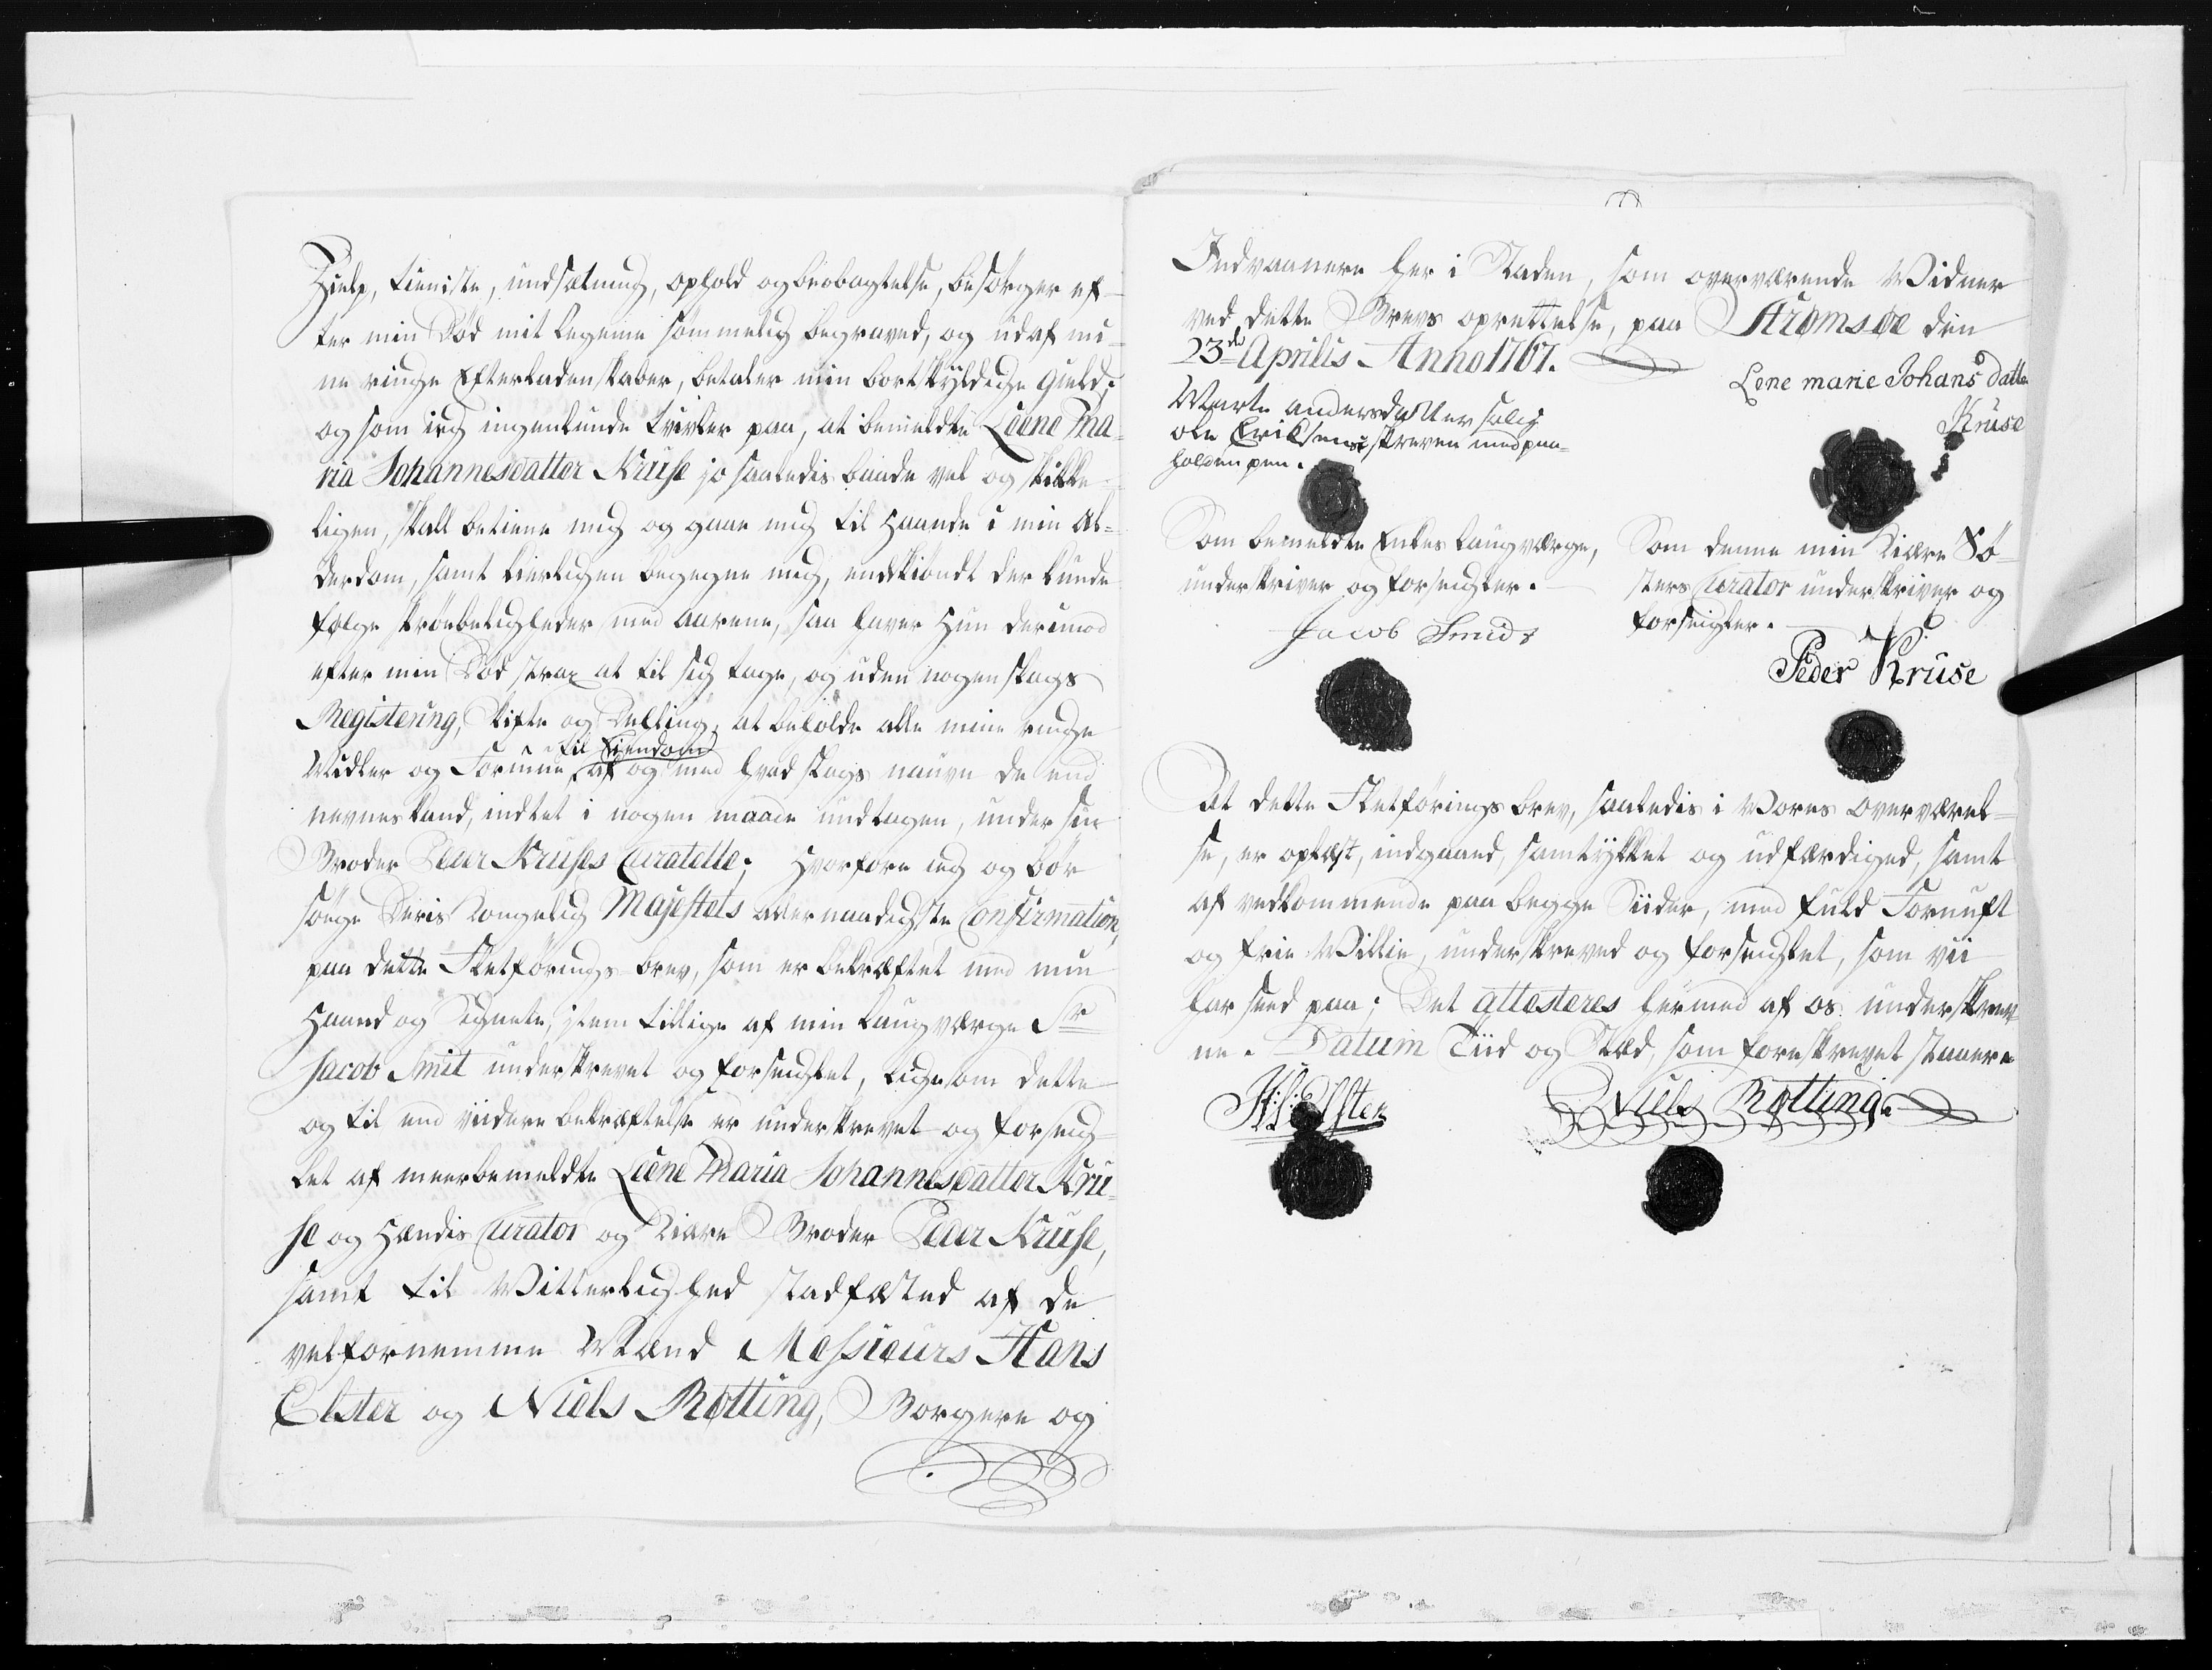 Hielp, tieniste, undsætning, ophold og beobagtelse, besørger ef-
ter min Død mit Legeme sømmelig begraved, og udaf mi-
ne ringe Efterladenskaber, betaler min bortskyldige Gield;
og som ieg ingenlunde tvivler paa, at bemeldte Leene Ma-
ria Johannesdatter Kruse jo saaledis baade vel og skikke-
ligen, skall betiene mig og gaae mig til Haande i min Al-
derdom, samt kierligen begegne mig, endskiøndt der kunde
følge skrøbeligheder med aarene, saa haver Hun derimod
efter min Død strax at til sig tage, og uden nogen slags
Registering, Skifte og Deelling, at beholde alle mine ringe
til Eiendom
Midler og Formue, af og med hvad slags navn de end
nevnes kand, indtet i nogen maade undtagen, under sin
Broder Peder Kruses Curatelle; Hvorfore ieg og bør
søge Deris Kongelig Majestets allernaadigste Confirmation,
paa dette Fletførings-brev, som er bekræftet med min
Haand og Signete, item tillige af min Laugværge Sr
Jacob Smit underskrevet og forseiglet, ligesom dette
og til end viidere bekræftelse er underskrevet og forseig-
let af meerbemeldte Leene Maria Johannesdatter Kru-
se og Hændis Curator og Kiære Broder Peder Kruse,
samt til Vitterlighed stadfæsted af de
velfornemme Mænd Messieurs Hans
Elster og Niels Røtting, Borgere og
Indvaanere her i Staden, som overværende Vidner
ved dette Brevs oprettelse, paa Strømsøe den
23de Aprilis Anno 1767.
Lene marie Johans datte
Kruse
Marte andersdatter salig
ole Eriksens skreven med paa-
holden pen.
Som bemeldte Enkes laugværge,
underskriver og forseigler.
Jacob Smidt
Som denne min Kiære Sø-
sters Curator underskriver og
forseigler.
Peder Kruse
At dette Fletførings brev, saaledis i Vores overværel-
se, er oplæst, indgaaed, samtykket og udfærdiged, samt
af vedkommende paa begge Siider, med fuld Fornuft
og frie Villie, underskreved og forseiglet, som vii
har seed paa; Det attesteres hermed af os underskrev-
ne. Datum Tiid og Stæd, som foreskrevet staaer
H: Elster
Niels Røtting.